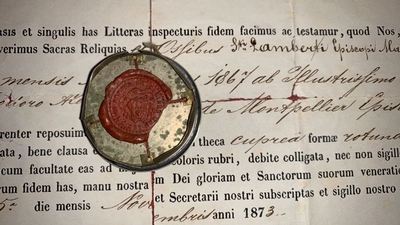 sis et singulis has Litteras inspecturis fidem facimus ac testamur, quod Nos,
verimus Sacras Reliquias ex Ossibus Sti Lamberti Episcopi Ma
mensis 1867 ab Illustrissimo
de Montpellier Epis
renter reposuim theca cuprea formæ rotun
ata, bene clausa e coloris rubri, debite colligata, nec non sigillo
cum facultate eas ad m Dei gloriam et Sanctorum suorum veneratio
rum fidem has, manu nostra et Secretarii nostri subscriptas et sigillo nostro
5a die mensis Novembris anni 1873.